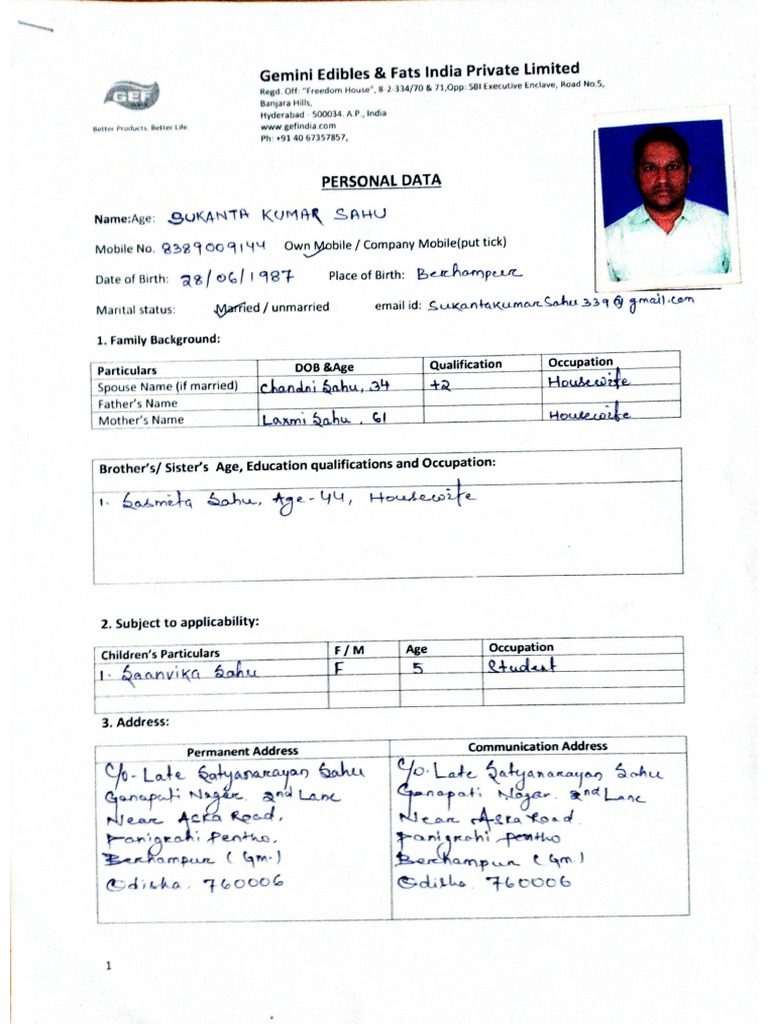 Gemini Edibles & Fats India Private Limited
Regd. Off: "Freedom House", 8-2-334/70 & 71,Opp: SBI Executive Enclave, Road No.5,
Banjara Hills,
Hyderabad - 500034. A.P., India
www.gefindia.com
Ph: +91 40 67357857,
GEF
Better Products. Better Life.
PERSONAL DATA
Name:Age: SUKANTA KUMAR SAHU
Mobile No. 8389009144 Own Mobile / Company Mobile(put tick)
Date of Birth: 28/06/1987 Place of Birth: Berhampur
Marital status: Married / unmarried email id: Sukantakumarsahu339@gmail.com
1. Family Background:
Particulars DOB &Age Qualification Occupation
Spouse Name (if married) Chandni Sahu, 34 +2 Housewife
Father's Name
Mother's Name Laxmi Sahu, 61 Housewife
Brother's/ Sister's Age, Education qualifications and Occupation:
1. Sasmita Sahu, Age-44, Housewife
2. Subject to applicability:
Children's Particulars F / M Age Occupation
1. Saanvika Sahu F 5 Student
3. Address:
Permanent Address Communication Address
C/o- Late Satyanarayan Sahu C/o- Late Satyanarayan Sahu
Ganapati Nagar, 2nd Lane Ganapati Nagar. 2nd Lane
Near Aska Road, Near Aska Road.
Panigrahi Pentho, Panigrahi Pentho
Berhampur (Gm.) Berhampur (Gm.)
Odisha. 760006 Odisha. 760006
1